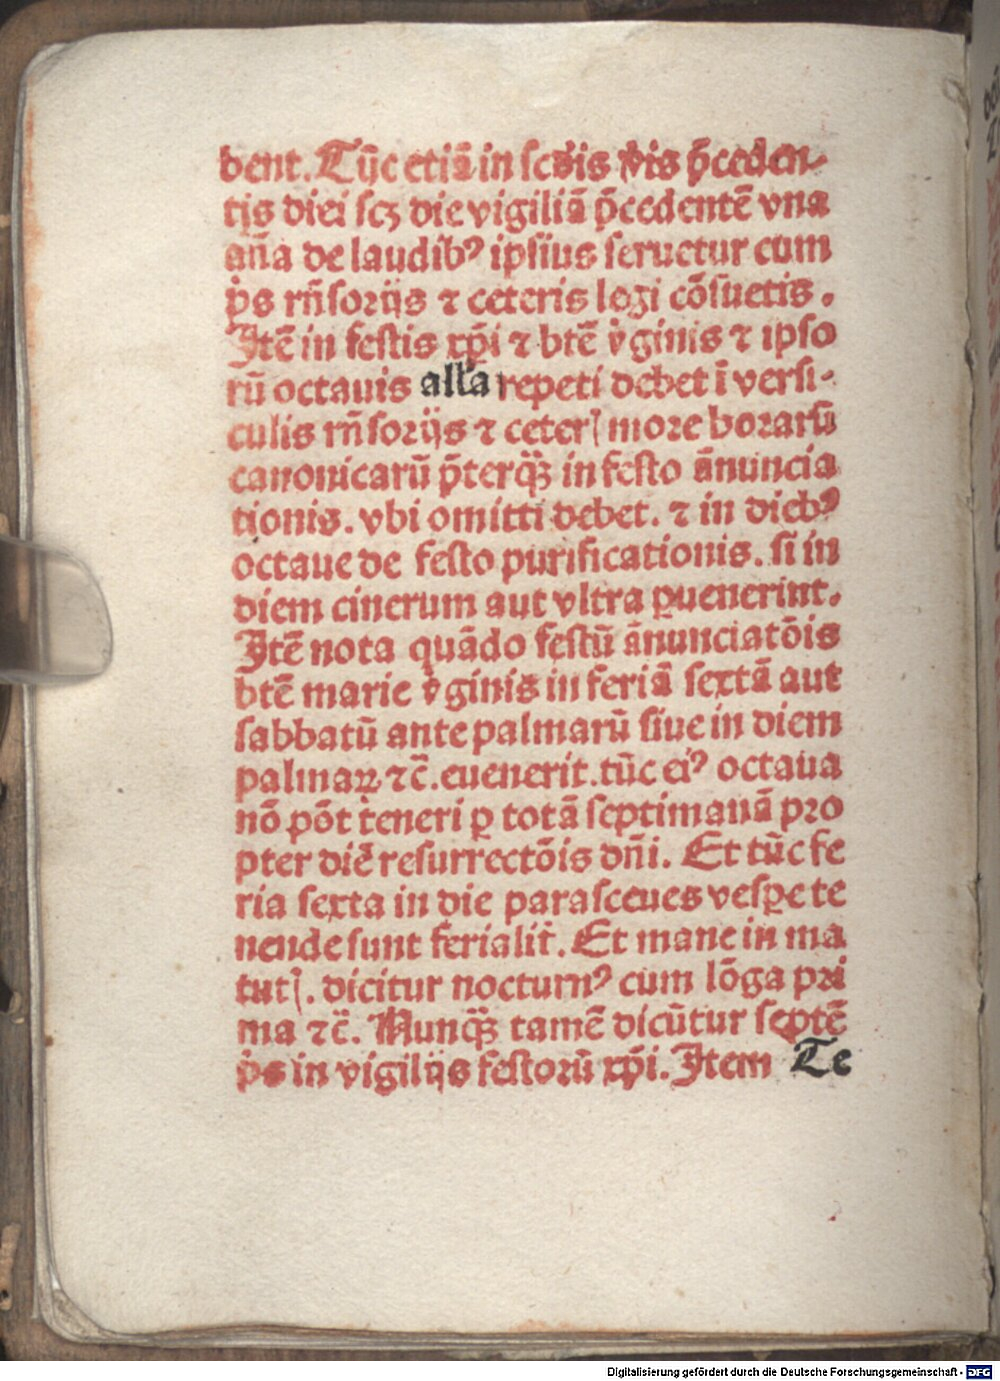 bent. Tūc etiā in scďis v̉is p̄ceden-
tis diei scꝫ die vigiliā p̄cedentē vna
an̄a de laudibꝰ ipsius seruetur cum
p̄s rn̄sorijs ⁊ ceteris legi cōsuetis.
Itē in festis xp̄i ⁊ btē v̉ginis ⁊ ipso
rū octauis alľa repeti debet ī versi-
culis rn̄sorijs ⁊ ceterꝭ more horarū
canonicarū p̄terqꝫ̄ in festo ānuncia
tionis. vbi omitti debet. ⁊ in diebꝰ
octaue de festo purificationis. si in
diem cinerum aut vltra ꝑuenerint.
Itē nota quādo festū ānunciatōis
btē marie v̉ginis in feriā sextā aut
sabbatū ante palmarū siue in diem
palmaꝝ ⁊c̄. euenerit. tūc eiꝰ octaua
nō pōt teneri ꝑ totā septimanā pro
pter diē resurrectōis dn̄i. Et tūc fe
ria sexta in die parasceues vesꝑe te
nende sunt ferialit̉. Et mane in ma
tutꝭ. dicitur nocturnꝰ cum lōga pri
ma ⁊c̄. Nunqꝫ̄ tamē dicūtur septē
p̄s in vigilijs festorū xp̄i. Item Te
Digitalisierung gefördert durch die Deutsche Forschungsgemeinschaft - DFG